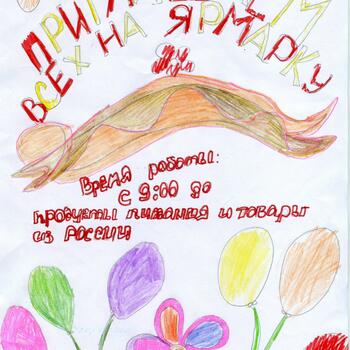 ВСЕХ НА ЯРМАРКУ
Время роботы:
С 9:00 до
продукты питания и товары
из России